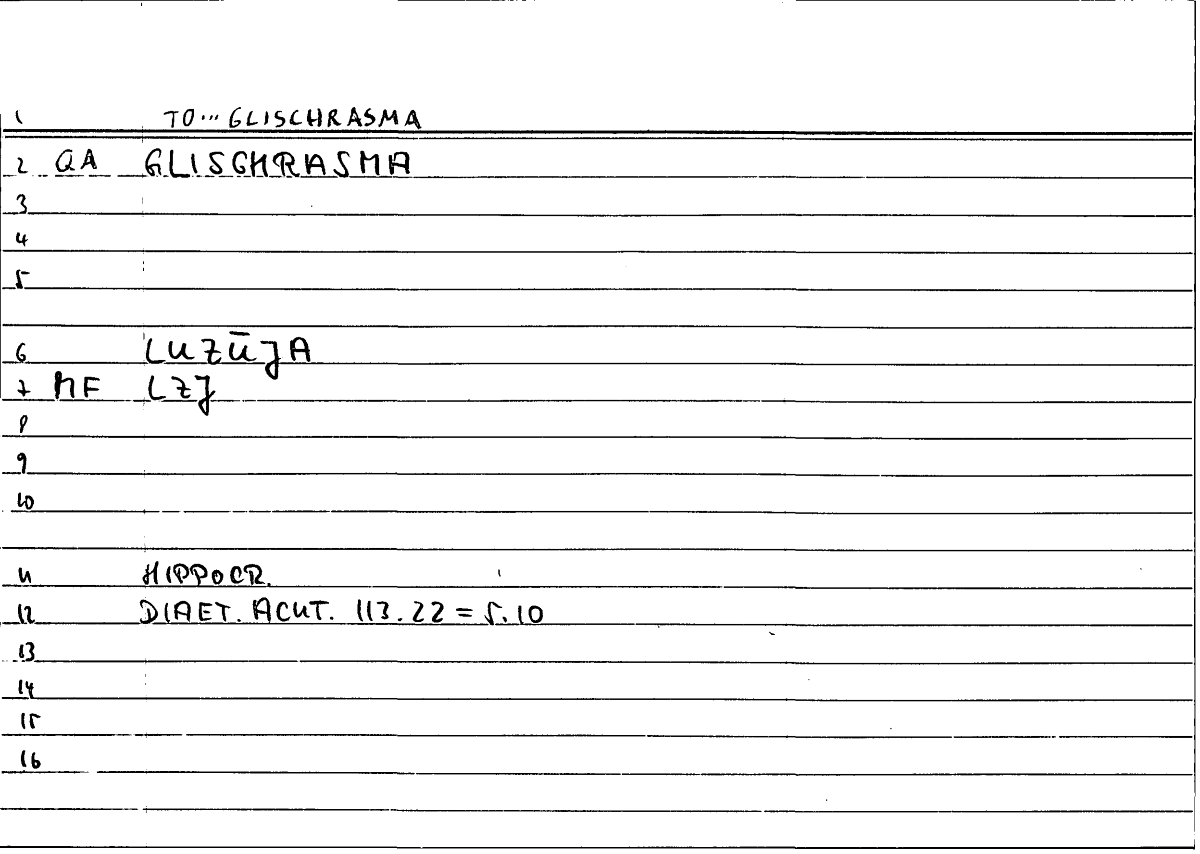 1 TO... GLISCHRASMA
2 QA GLISCHRASMA
3
4
5
6 LUZŪJA
7 MF LZJ
8
9
10
11 HIPPOCR.
12 DIAET. ACUT. 113.22 = 5.10
13
14
15
16